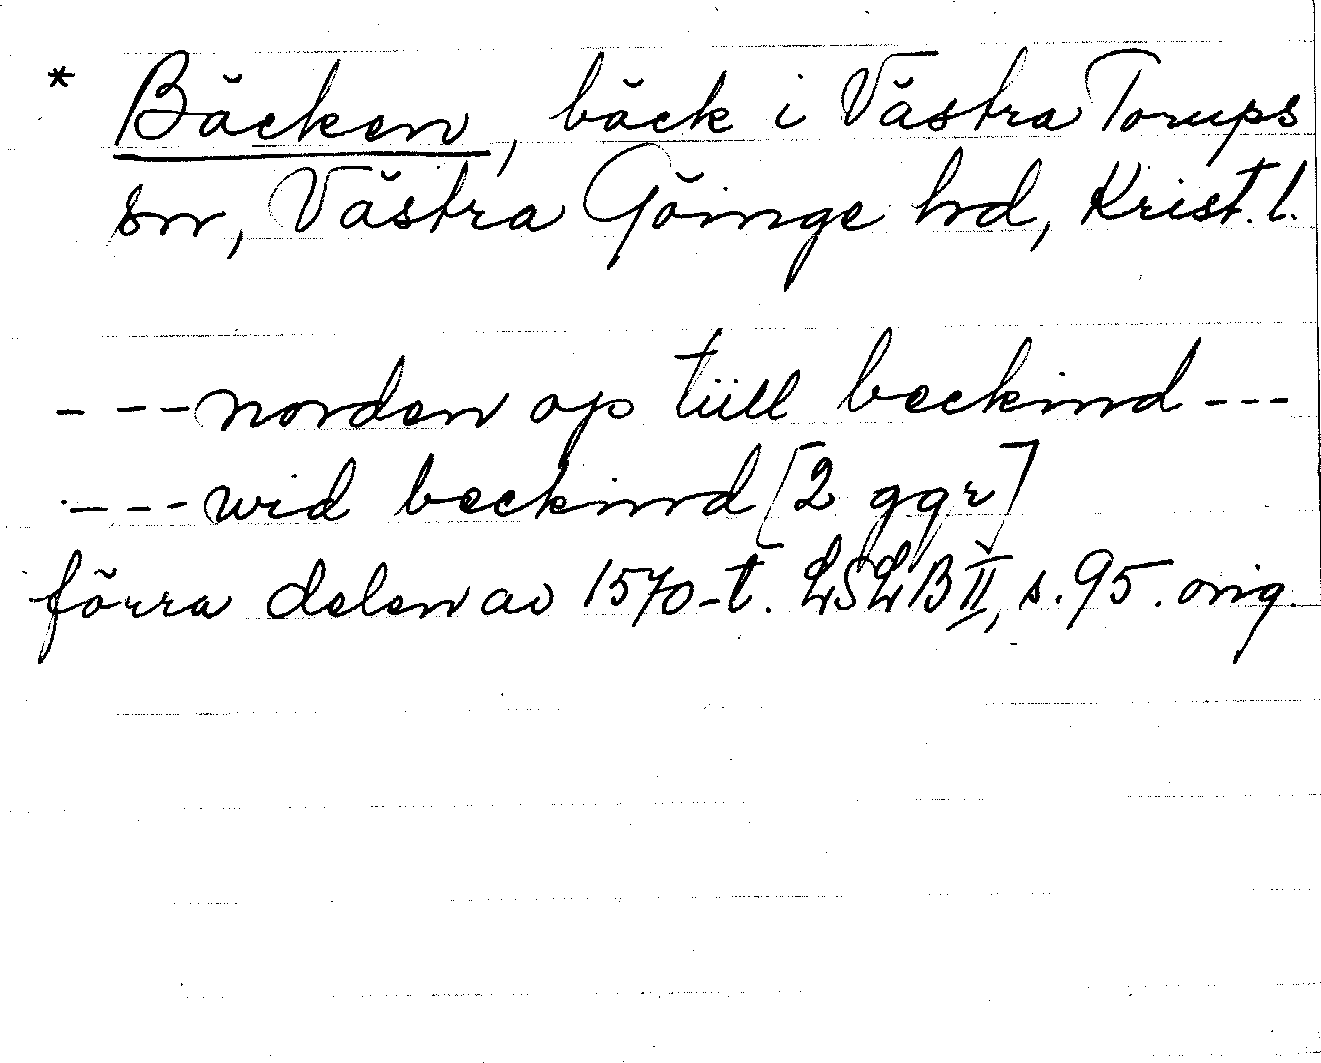 * Bäcken, bäck i Västra Torups
sn, Västra Göinge hd, Krist. l.
- - - norden op tüll beckind - - -
- - - wid beckind [2 ggr]
förra delen av 1570-t. LSLB II, s. 95. orig.